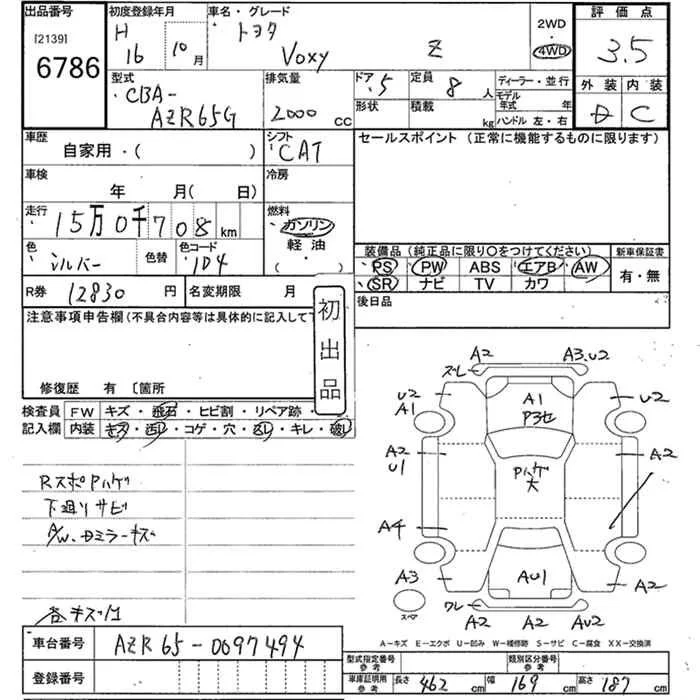 出品番号
[2139]
6786
初度登録年月
H 16 10月
車名・グレード
トヨタ Voxy Z
2WD
4WD
評価点
3.5
外装 内装
D C
型式
CBA-
AZR65G
排気量
2000 cc
ドア 5
定員 8 人
形状
積載 kg
ディーラー・並行
モデル年式 年
ハンドル 左・右
車歴
自家用・( )
シフト
CAT
セールスポイント（正常に機能するものに限ります）
車検
年 月( 日)
冷房
走行
15万0千708 km
燃料
ガソリン
軽油・
( )
色
シルバー
色替
色コード
1D4
装備品（純正品に限り○をつけてください）
新車保証書
PS PW ABS エアB AW
SR ナビ TV カワ
有・無
R券 12830 円
名変期限 月
後日品
初出品
注意事項申告欄(不具合内容等は具体的に記入して下
修復歴 有〔箇所
検査員 FW キズ・飛石・ヒビ割・リペア跡・
記入欄 内装 キズ・汚レ・コゲ・穴・スレ・キレ・破レ
RスポPハゲ
下廻りサビ
A/W、Dミラーキズ
各キズ凹
A2 A3.U2
ズレ
U2
A1
A1
P3セ
U2
A2
U1
Pハゲ
大
A2
A4
A3
AU1
A2
ワレ
スペア
A2 A2 AU2
A－キズ E－エクボ U－凹み W－補修跡 S－サビ C－腐食 XX－交換済
車台番号 AZR65-0097494
登録番号
型式指定番号
参考
類別区分番号
参考
車庫証明用
参考
長さ 462 cm 幅 169 cm 高さ 187 cm